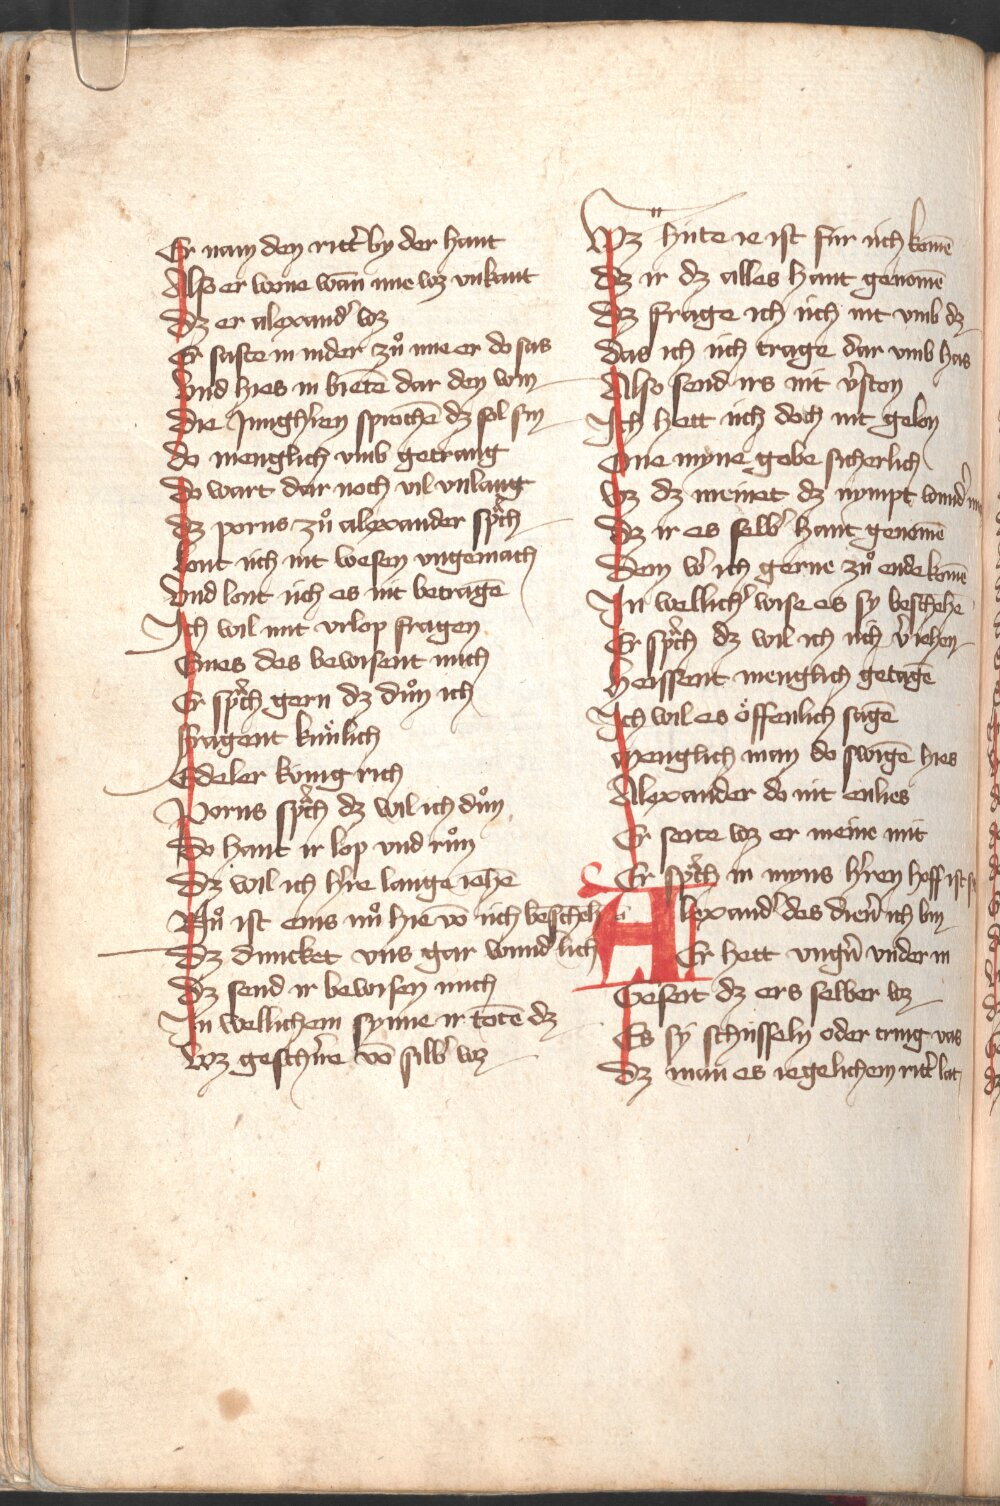 Er nam den ritt̉ by der hant
Also er wone wan̄ ime wz vnkant
Dz er alexand̉ wz
Er saste in nider zuͦ ime er do sas
Vnd hies in bietē dar den win
Die Jungh̉ren sprochē dz sol sin
do menglich vmb getrang
Do wart dar noch vil vnlang
dz porus zuͦ alexander sp̉ch
Lont uch nit wesen vngemach
Vnd lont uch es nit betragē
Ich wil mit vrlop fragen
Eines des bewisent mich
Er sp̉ch gern dz duͦn ich
fragent kuͤnlich
Edeler kuͤnig rich
Porus sp̉ch dz wil ich duͦn
Do hant ir lop vnd ruͦm
Dz wil ich h̉re lange iehē
Nuͦ ist eins nuͦ hie vō uch beschehē
Dz duncket vns gar wund̉lich
Dz send ir bewisen mich
In wellichem synne ir totē dz
Wz geschirre vō silb̉ wz
Wz hute ie ist fur uch komē
Dz ir dz alles hant genomē
Dz frage ich uch nit vmb dz
Das ich uch trage dar vmb has
Also send irs nit v̉ston
Ich hett uch doch nit gelon
One myne gobe sicherlich
Wz dz meinet dz nympt wund̉
Dz ir es selb̉ hant genomē
Dem w̉ ich gerne zuͦ ende komē
In wellich̉ wise es sy beschehē
Er sp̉ch dz wil ich uch v̉iehen
Heissent menglich getagē
Ich wil es oͤffenlich sagē
Menglich man do swigē hies
Alexander do nit enlies
Er seite wz er meine mit
Er sp̉ch in myns h̉ren hoff ist
Alexand̉ des dien̉ ich bin
Er hett vng̉n vnder in
Geseit dz ers selber wz
Es sy schusseln oder tring vas
Dz man es iegelichem ritt̉ lat